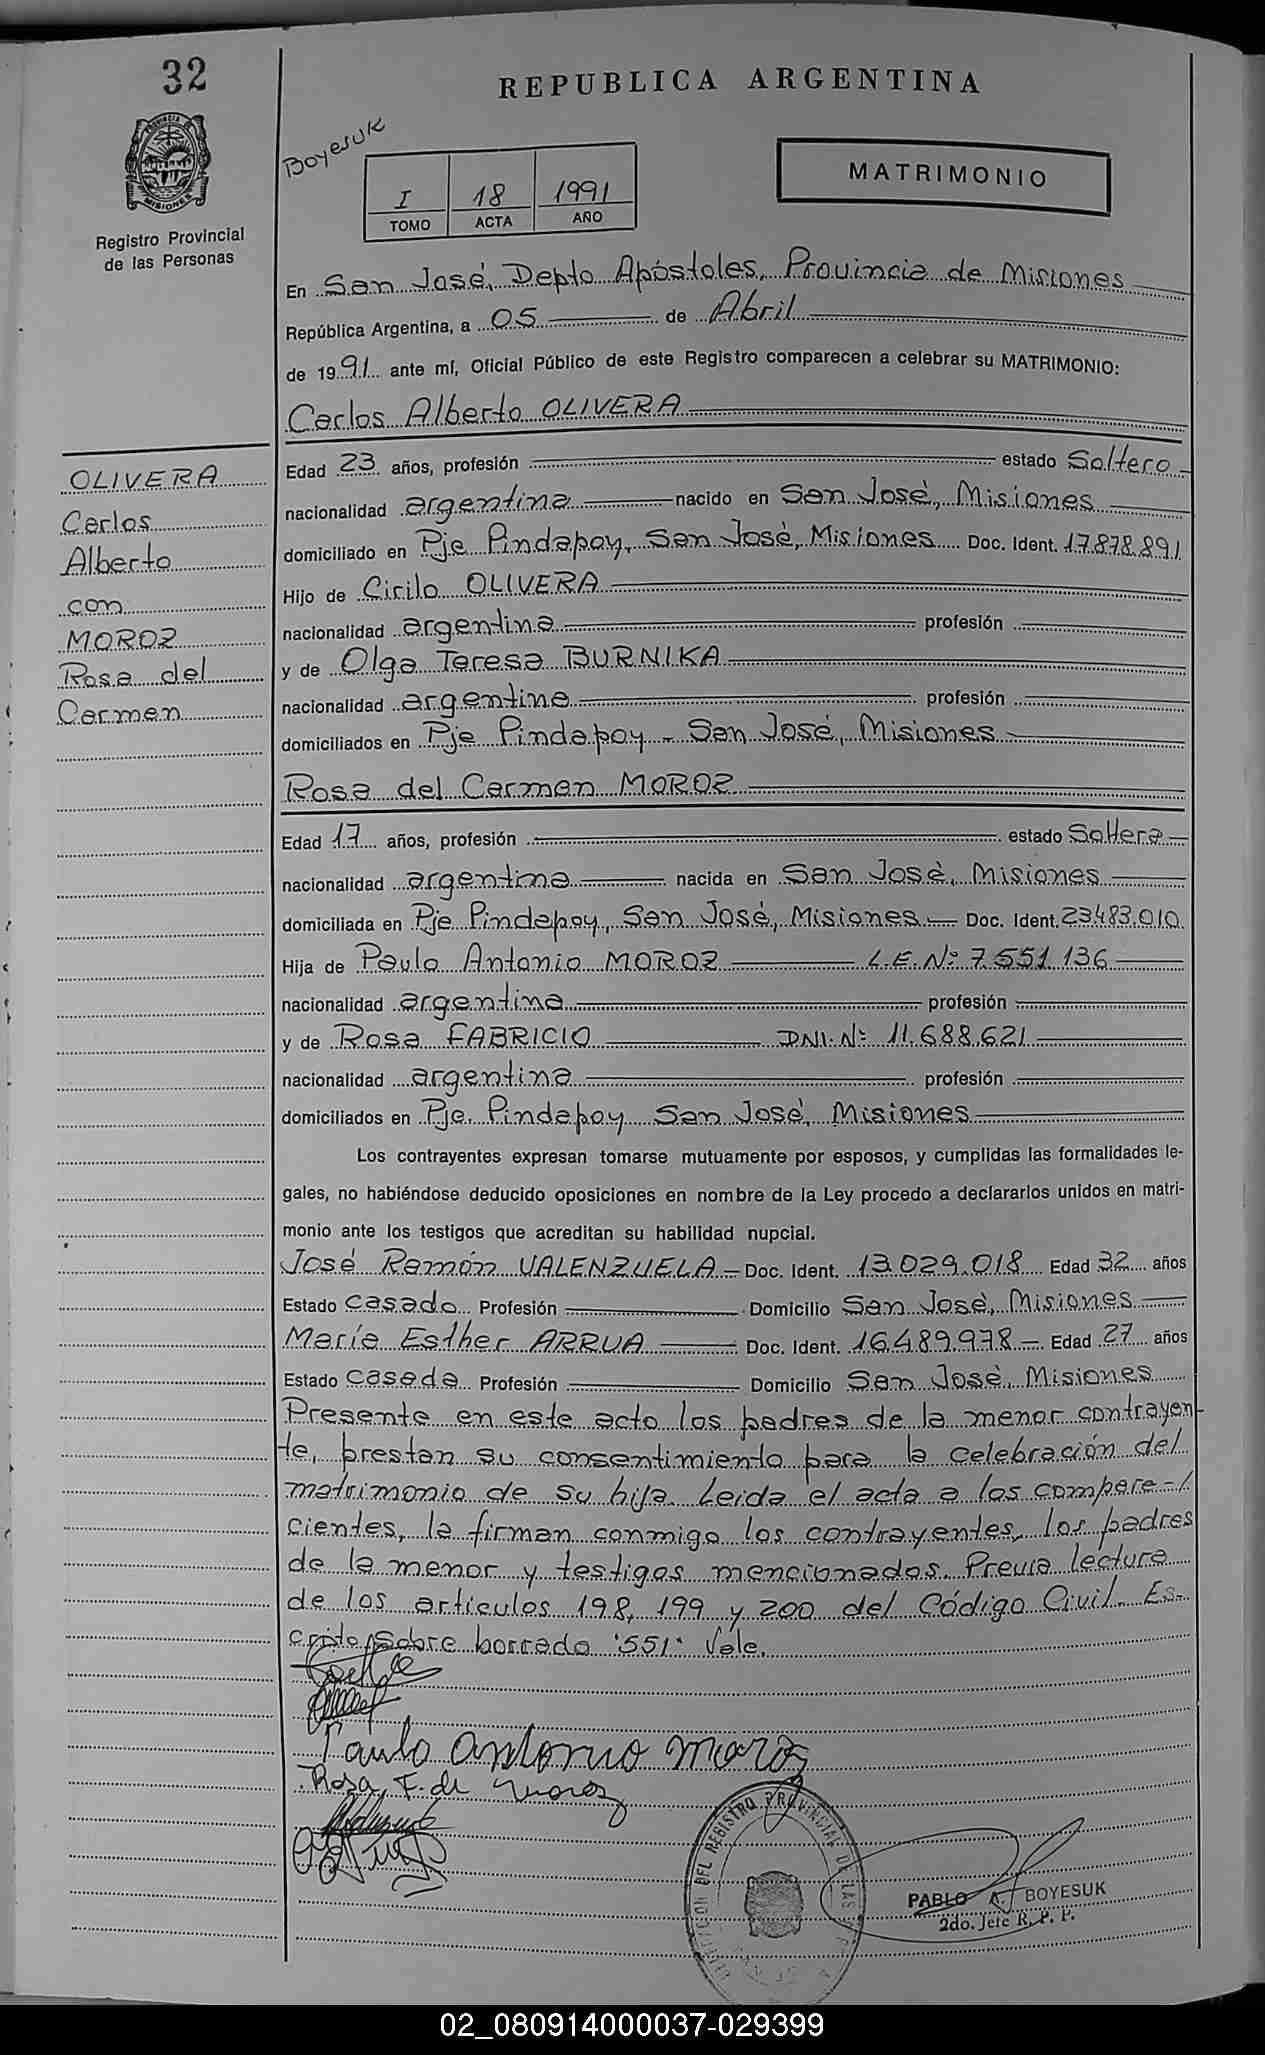 32
REPUBLICA ARGENTINA
Boyesuk
PROVINCIA DE
MISIONES
Registro Provincial
de las Personas
I 18 1991
TOMO ACTA AÑO
MATRIMONIO
En San José, Depto Apóstoles, Provincia de Misiones
República Argentina, a 05 de Abril
de 1991 ante mí, Oficial Público de este Registro comparecen a celebrar su MATRIMONIO:
Carlos Alberto OLIVERA
OLIVERA
Carlos
Alberto
con
MOROZ
Rosa del
Carmen
Edad 23 años, profesión estado Soltero
nacionalidad argentina nacido en San José, Misiones
domiciliado en Pje Pindapoy, San José, Misiones Doc. Ident. 17.878.891
Hijo de Cirilo OLIVERA
nacionalidad argentina profesión
y de Olga Teresa BURNIKA
nacionalidad argentina profesión
domiciliados en Pje Pindapoy - San José, Misiones
Rosa del Carmen MOROZ
Edad 17 años, profesión estado Soltera
nacionalidad argentina nacida en San José, Misiones
domiciliada en Pje Pindapoy, San José, Misiones Doc. Ident. 23.483.010
Hija de Paulo Antonio MOROZ L.E. Nº 7.551.136
nacionalidad argentina profesión
y de Rosa FABRICIO DNI. Nº 11.688.621
nacionalidad argentina profesión
domiciliados en Pje. Pindapoy San José, Misiones
Los contrayentes expresan tomarse mutuamente por esposos, y cumplidas las formalidades le-
gales, no habiéndose deducido oposiciones en nombre de la Ley procedo a declararlos unidos en matri-
monio ante los testigos que acreditan su habilidad nupcial.
José Ramón VALENZUELA Doc. Ident. 13.029.018 Edad 32 años
Estado casado Profesión Domicilio San José, Misiones
María Esther ARRUA Doc. Ident. 16.489.978 Edad 27 años
Estado casada Profesión Domicilio San José, Misiones
Presente en este acto los padres de la menor contrayen-
te, prestan su consentimiento para la celebración del
matrimonio de su hija. Leida el acta a los compare-/
cientes, la firman conmigo los contrayentes, los padres
de la menor y testigos mencionados. Previa lectura
de los artículos 198, 199 y 200 del Código Civil. Es-
crito sobre borrado "551" Vale.
Paulo Antonio Moroz
Rosa F. de Moroz
DIRECCION DEL REGISTRO PROVINCIAL DE LAS
PABLO A. BOYESUK
2do. Jefe R. P. P.
02_080914000037-029399